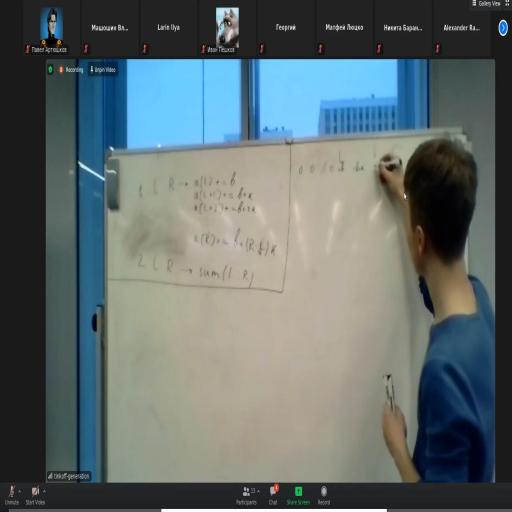 Gallery View
Павел Артюшков
Мацюшин Вл...
Larin Ilya
Иван Пешков
Георгий
Матфей Люцко
Никита Баран...
Alexander Ra...
Recording
Unpin Video
1 L R → a[L] + = b
a[L+1] + = b+k
a[L+2] + = b+2k
2 L R → sum(L R)
0 0
tinkoff-generation
Unmute
Start Video
Participants
Chat
Share Screen
Record